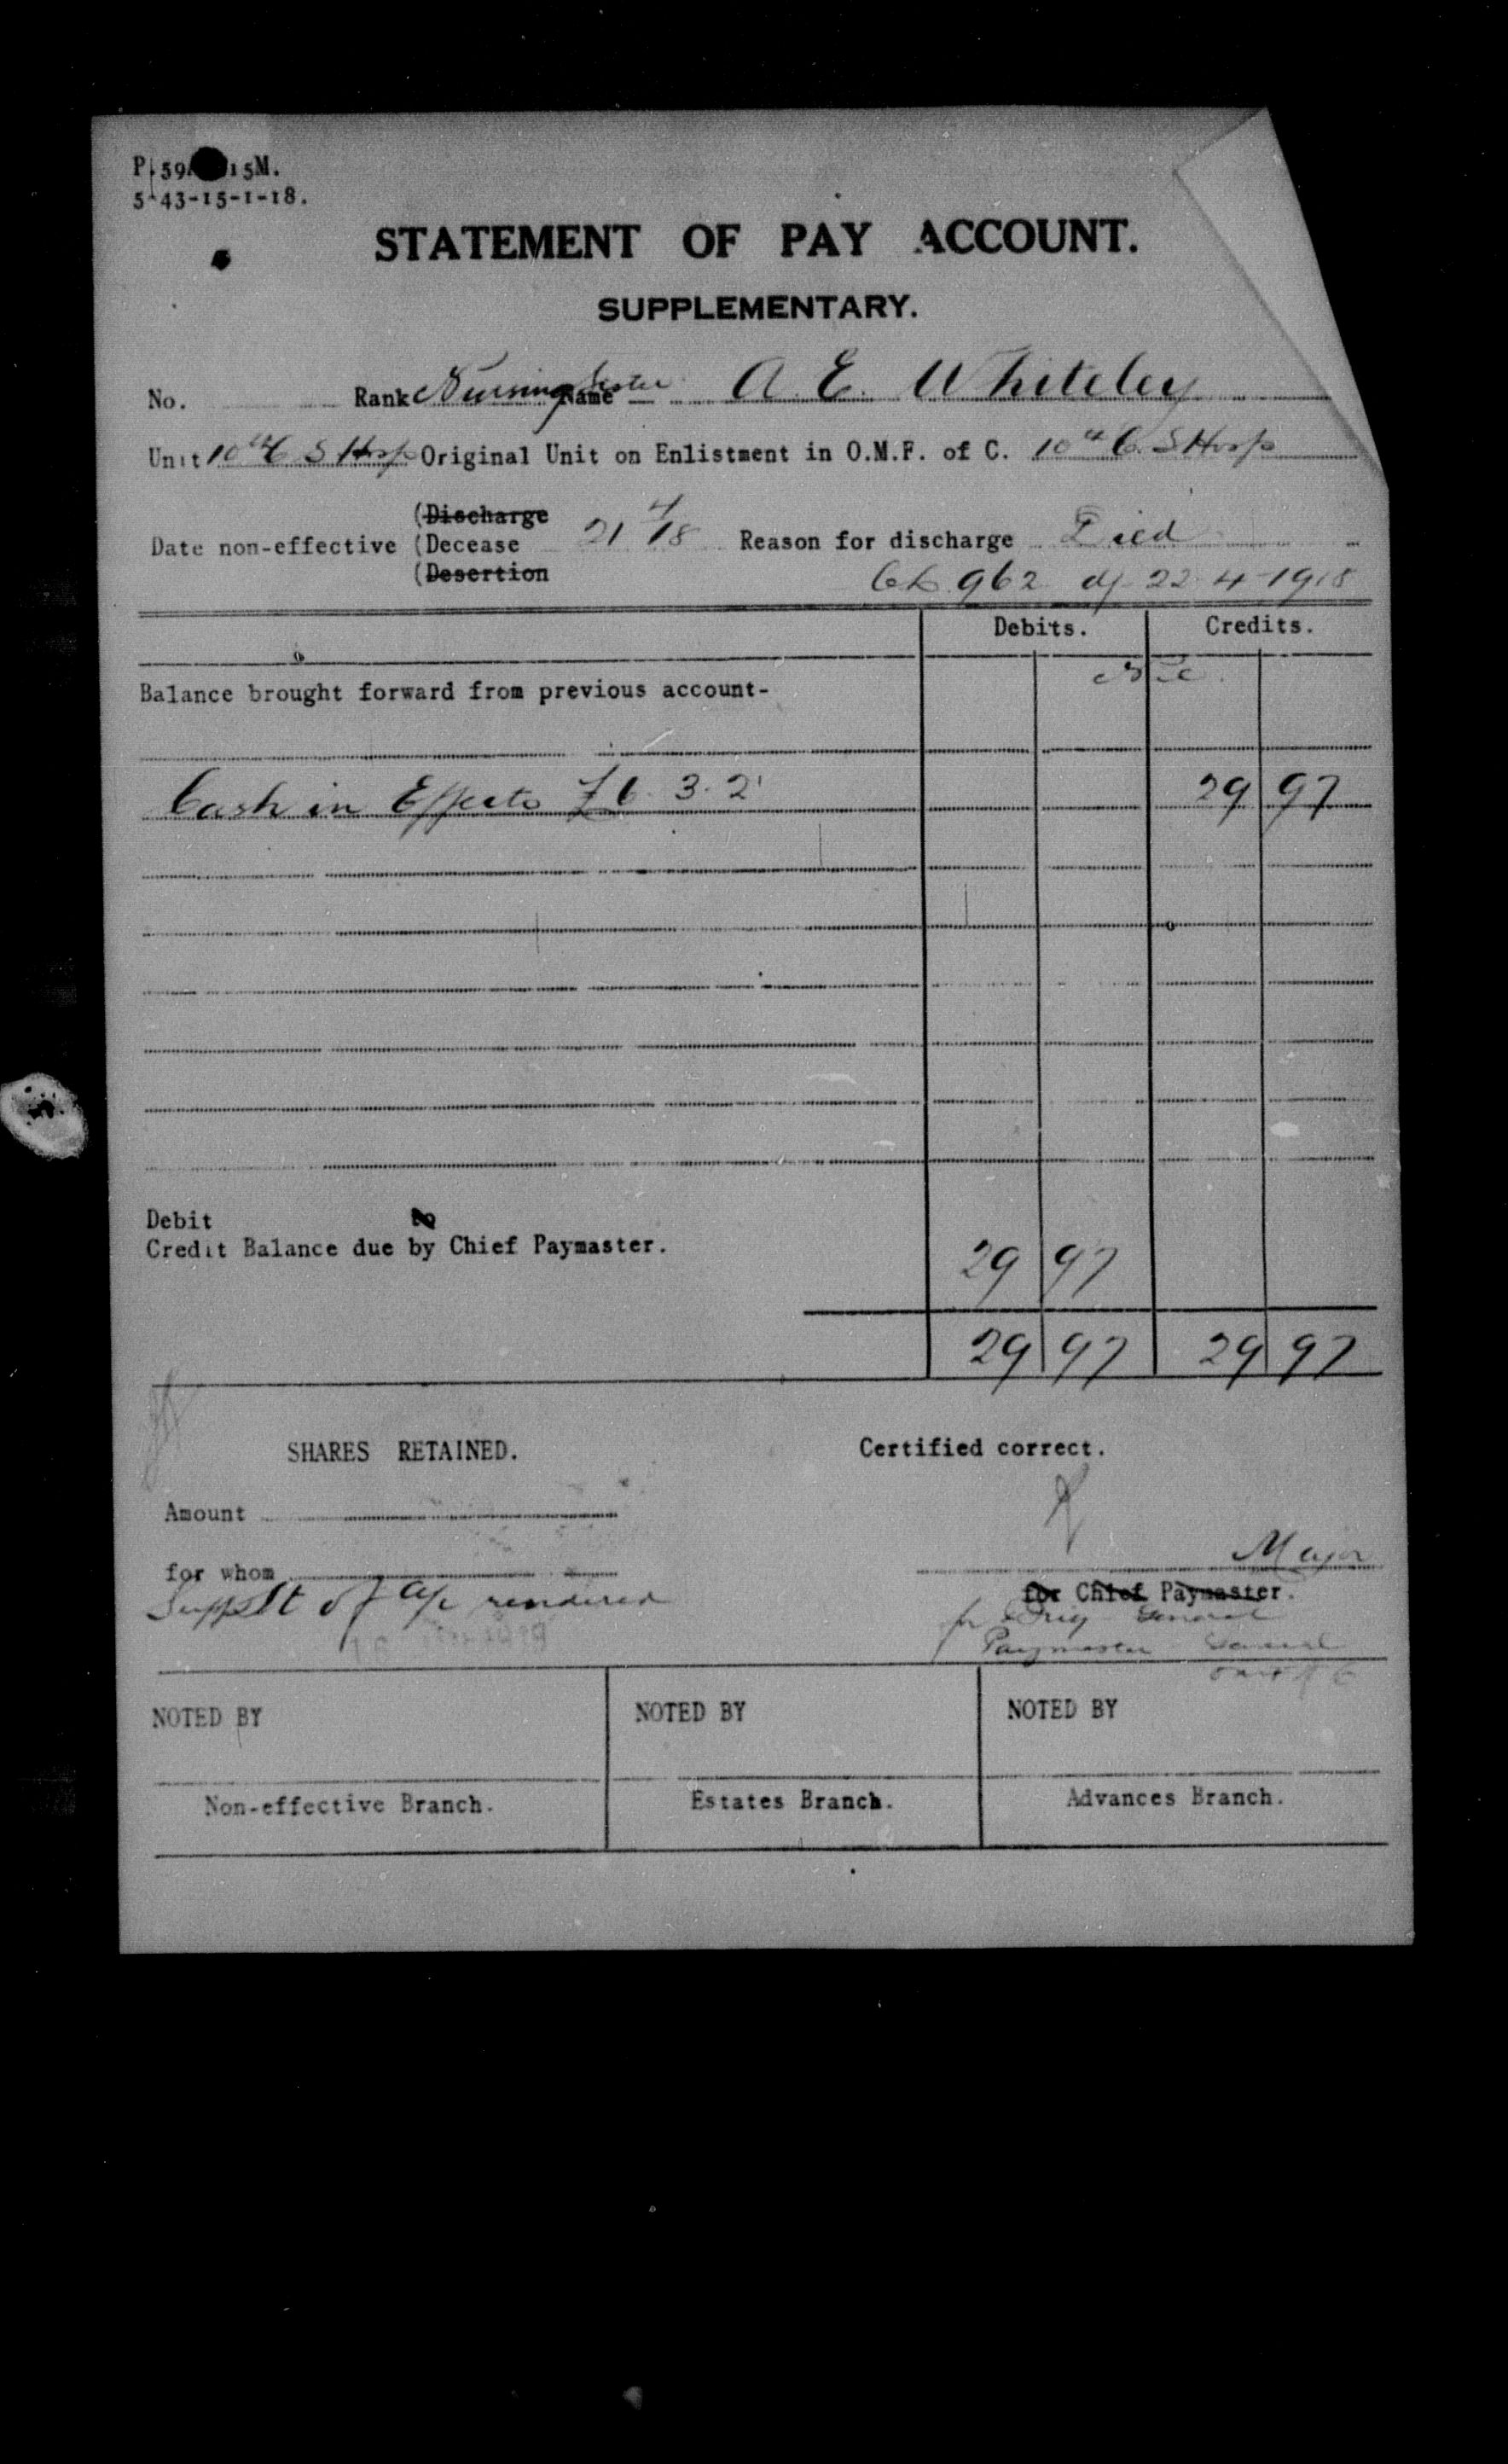 P.59 15M.
5-43-15-1-18.
STATEMENT OF PAY ACCOUNT.
SUPPLEMENTARY.
No. Rank Nursing Sister Name A. E. Whiteley
Unit 10th C S Hosp Original Unit on Enlistment in O.M.F. of C. 10th C. S Hosp
(Discharge
Date non-effective (Decease 21/4/18 Reason for discharge Died
(Desertion
962 22-4-1918
Debits. Credits.
Balance brought forward from previous account- Nil
Cash in Effects £6. 3. 2 29 97
Debit
Credit Balance due by Chief Paymaster. 29 97
29 97 29 97
SHARES RETAINED. Certified correct.
Amount
for whom Major
Supp St of a/c rendered for Chief Paymaster.
for Brig General
Paymaster General
NOTED BY NOTED BY NOTED BY
Non-effective Branch. Estates Branch. Advances Branch.